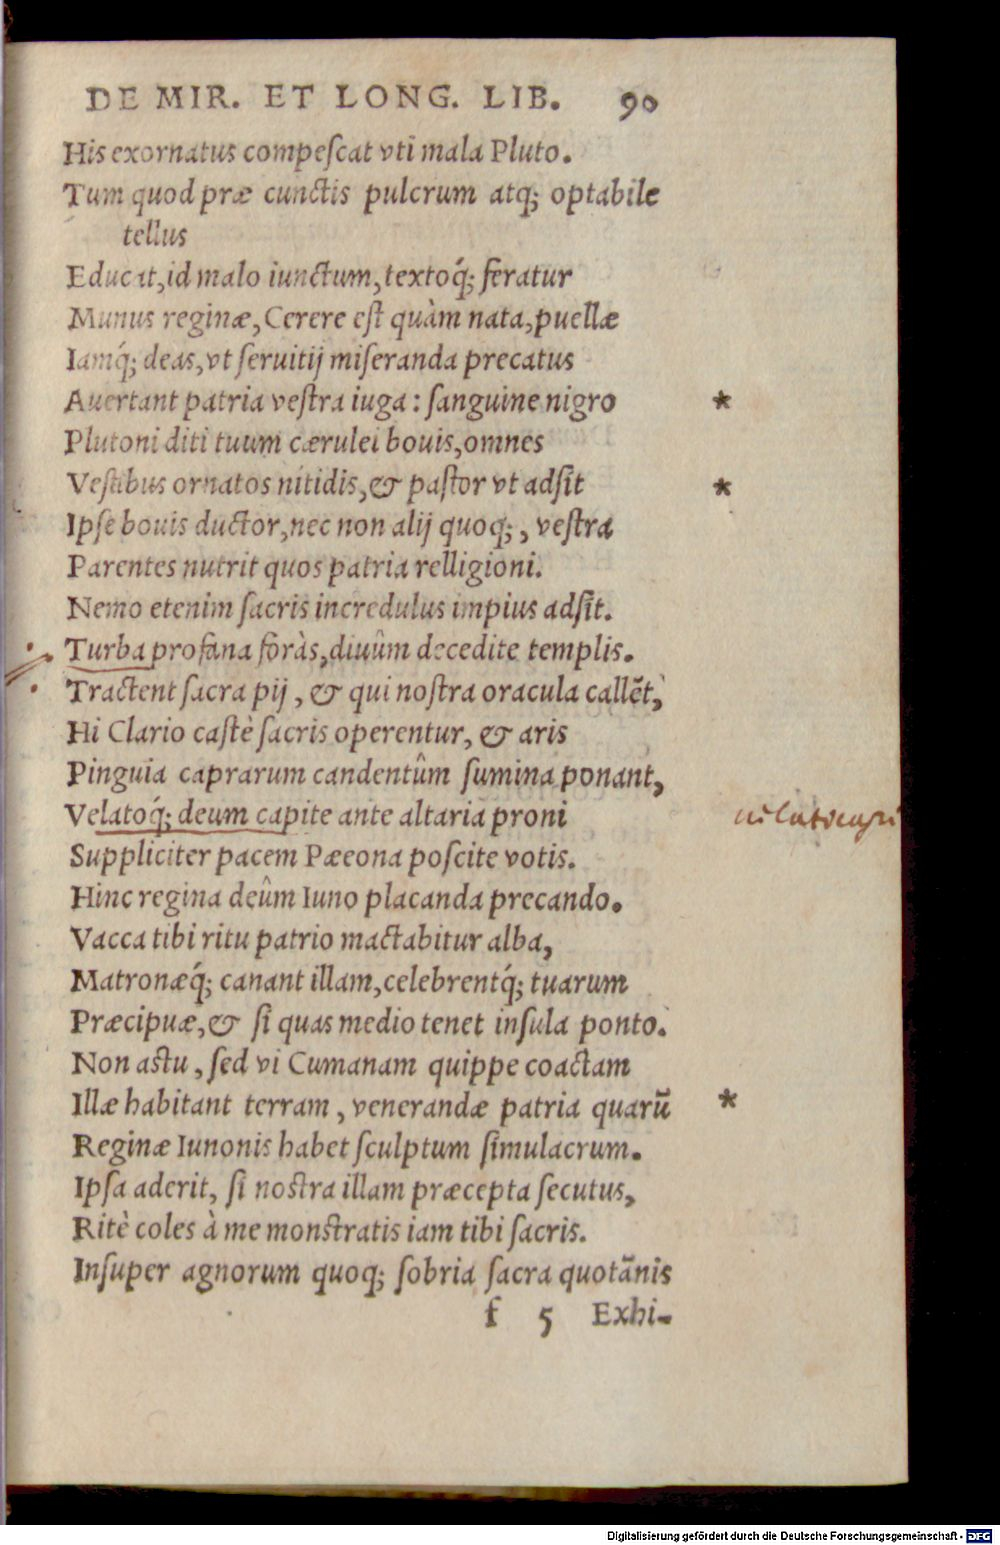 DE MIR. ET LONG. LIB. 90
His exornatus compeſcat vti mala Pluto.
Tum quod præ cunctis pulcrum atq; optabile
tellus
Educat, id malo iunctum, textoq́; feratur
Munus reginæ, Cerere eſt quàm nata, puellæ
Iamq́; deas, vt ſeruitij miſeranda precatus
Auertant patria veſtra iuga : ſanguine nigro *
Plutoni diti tuum cærulei bouis, omnes
Veſtibus ornatos nitidis, & paſtor vt adſit *
Ipſe bouis ductor, nec non alij quoq; , veſtra
Parentes nutrit quos patria relligioni.
Nemo etenim ſacris incredulus impius adſit.
Turba profana foràs, diuûm decedite templis.
Tractent ſacra pij, & qui noſtra oracula callẽt,
Hi Clario caſtè ſacris operentur, & aris
Pinguia caprarum candentûm ſumina ponant,
Velatoq́; deum capite ante altaria proni
Suppliciter pacem Pæeona poſcite votis.
Hinc regina deûm Iuno placanda precando.
Vacca tibi ritu patrio mactabitur alba,
Matronæq́; canant illam, celebrentq́; tuarum
Præcipuæ, & ſi quas medio tenet inſula ponto.
Non aſtu, ſed vi Cumanam quippe coactam
Illæ habitant terram, venerandæ patria quarũ *
Reginæ Iunonis habet ſculptum ſimulacrum.
Ipſa aderit, ſi noſtra illam præcepta ſecutus,
Ritè coles à me monſtratis iam tibi ſacris.
Inſuper agnorum quoq; ſobria ſacra quotãnis
f 5 Exhi-
Digitalisierung gefördert durch die Deutsche Forschungsgemeinschaft - DFG